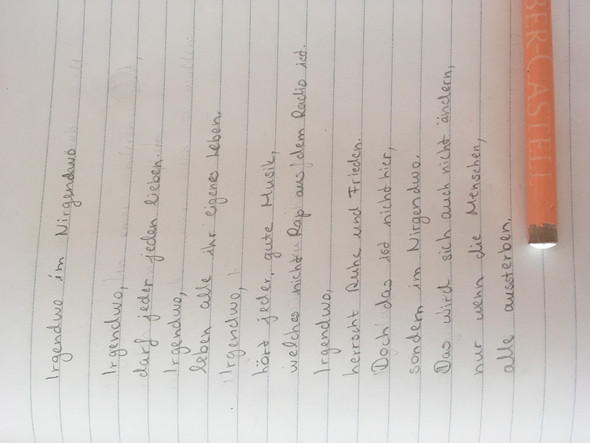 Irgendwo im Nirgendwo
Irgendwo,
darf jeder jeden lieben.
Irgendwo,
leben alle ihr eigenes Leben.
Irgendwo,
hört jeder, gute Musik,
welches nicht Rap aus dem Radio ist.
Irgendwo,
herrscht Ruhe und Frieden.
Doch das ist nicht hier,
sondern im Nirgendwo.
Das wird sich auch nicht ändern,
nur wenn die Menschen,
alle aussterben.
BER-CASTELL